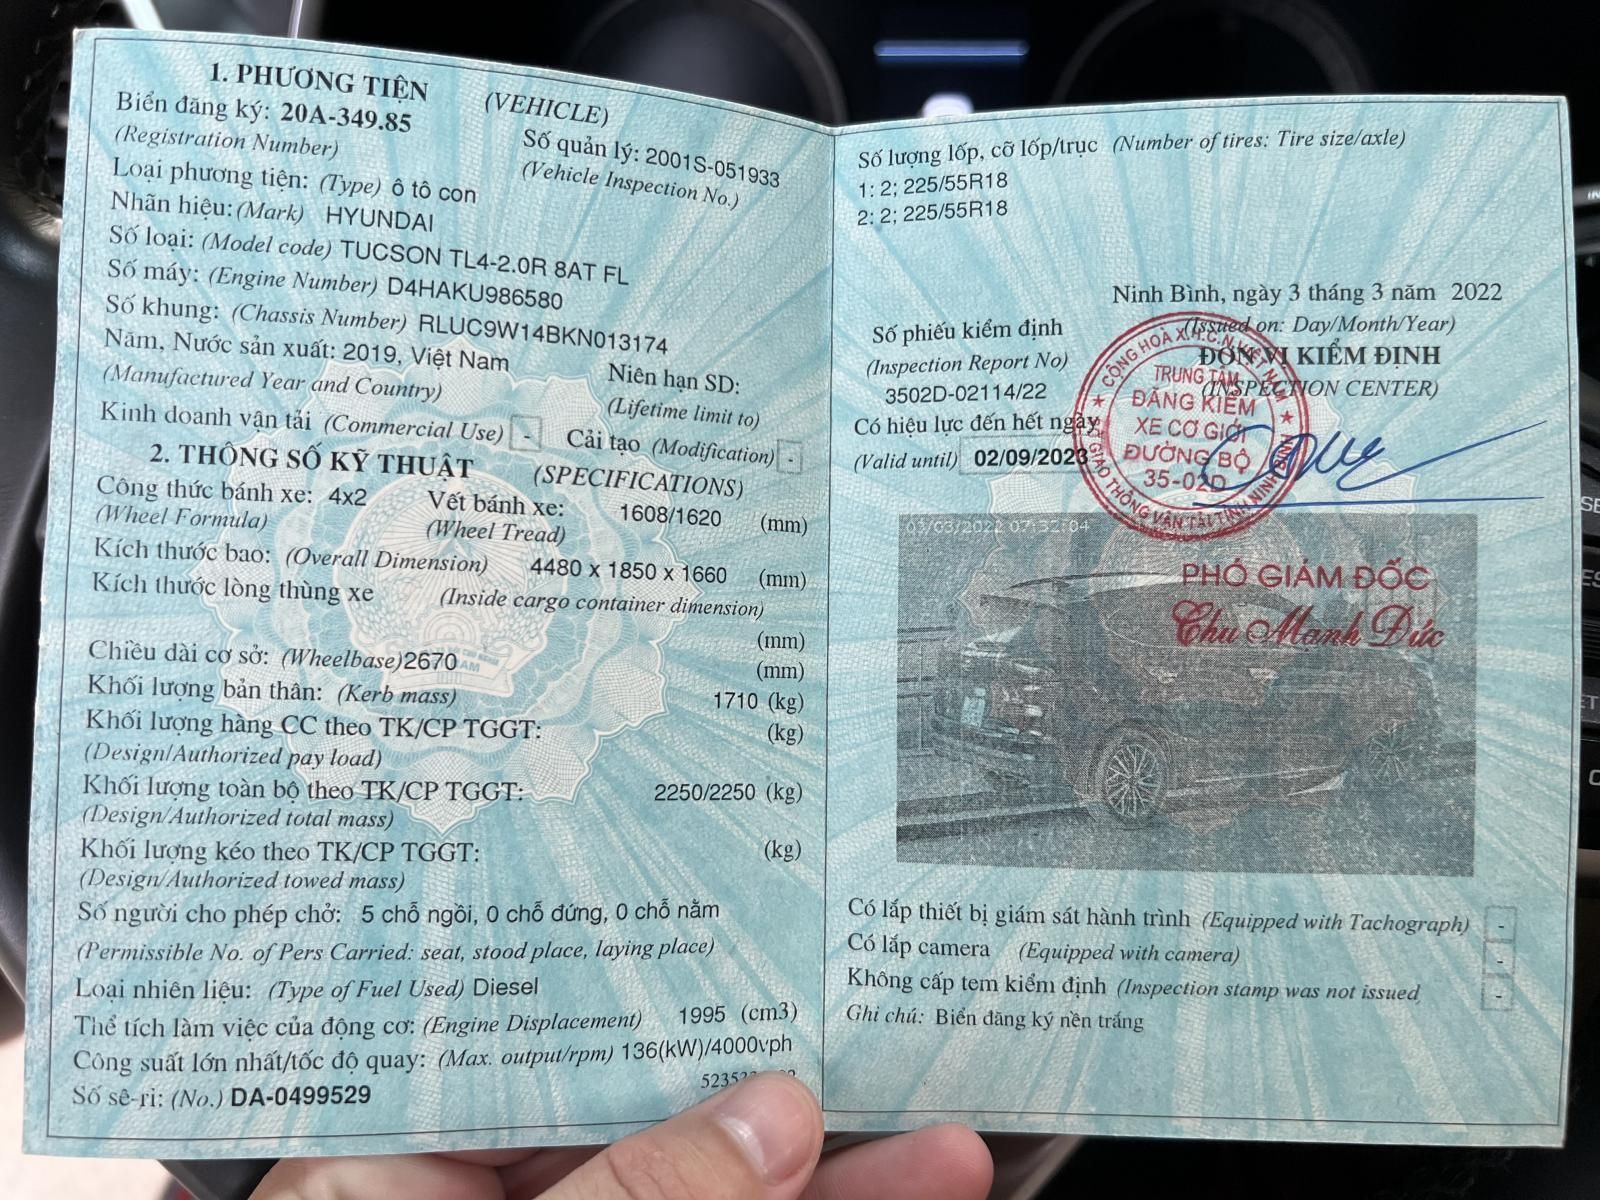 1. PHƯƠNG TIỆN (VEHICLE)
Biển đăng ký: 20A-349.85
(Registration Number)
Số quản lý: 2001S-051933
(Vehicle Inspection No.)
Loại phương tiện: (Type) ô tô con
Nhãn hiệu: (Mark) HYUNDAI
Số loại: (Model code) TUCSON TL4-2.0R 8AT FL
Số máy: (Engine Number) D4HAKU986580
Số khung: (Chassis Number) RLUC9W14BKN013174
Năm, Nước sản xuất: 2019, Việt Nam
(Manufactured Year and Country)
Niên hạn SD:
(Lifetime limit to)
Kinh doanh vận tải (Commercial Use) - Cải tạo (Modification) -
2. THÔNG SỐ KỸ THUẬT (SPECIFICATIONS)
Công thức bánh xe: 4x2
(Wheel Formula)
Vết bánh xe: 1608/1620 (mm)
(Wheel Tread)
Kích thước bao: (Overall Dimension) 4480 x 1850 x 1660 (mm)
Kích thước lòng thùng xe (Inside cargo container dimension)
(mm)
Chiều dài cơ sở: (Wheelbase) 2670 (mm)
Khối lượng bản thân: (Kerb mass) 1710 (kg)
Khối lượng hàng CC theo TK/CP TGGT: (kg)
(Design/Authorized pay load)
Khối lượng toàn bộ theo TK/CP TGGT: 2250/2250 (kg)
(Design/Authorized total mass)
Khối lượng kéo theo TK/CP TGGT: (kg)
(Design/Authorized towed mass)
Số người cho phép chở: 5 chỗ ngồi, 0 chỗ đứng, 0 chỗ nằm
(Permissible No. of Pers Carried: seat, stood place, laying place)
Loại nhiên liệu: (Type of Fuel Used) Diesel
Thể tích làm việc của động cơ: (Engine Displacement) 1995 (cm3)
Công suất lớn nhất/tốc độ quay: (Max. output/rpm) 136(kW)/4000vph
Số sê-ri: (No.) DA-0499529
Số lượng lốp, cỡ lốp/trục (Number of tires: Tire size/axle)
1: 2; 225/55R18
2: 2; 225/55R18
Ninh Bình, ngày 3 tháng 3 năm 2022
(Issued on: Day/Month/Year)
Số phiếu kiểm định
(Inspection Report No)
3502D-02114/22
ĐƠN VỊ KIỂM ĐỊNH
(INSPECTION CENTER)
Có hiệu lực đến hết ngày
(Valid until) 02/09/2023
CỘNG HOÀ X.H.C.N VIỆT NAM
TRUNG TÂM
ĐĂNG KIỂM
XE CƠ GIỚI
ĐƯỜNG BỘ
35-02D
SỞ GIAO THÔNG VẬN TẢI TỈNH NINH
03/03/2022 07:32:04
PHÓ GIÁM ĐỐC
Chu Mạnh Đức
Có lắp thiết bị giám sát hành trình (Equipped with Tachograph) -
Có lắp camera (Equipped with camera) -
Không cấp tem kiểm định (Inspection stamp was not issued -
Ghi chú: Biển đăng ký nền trắng